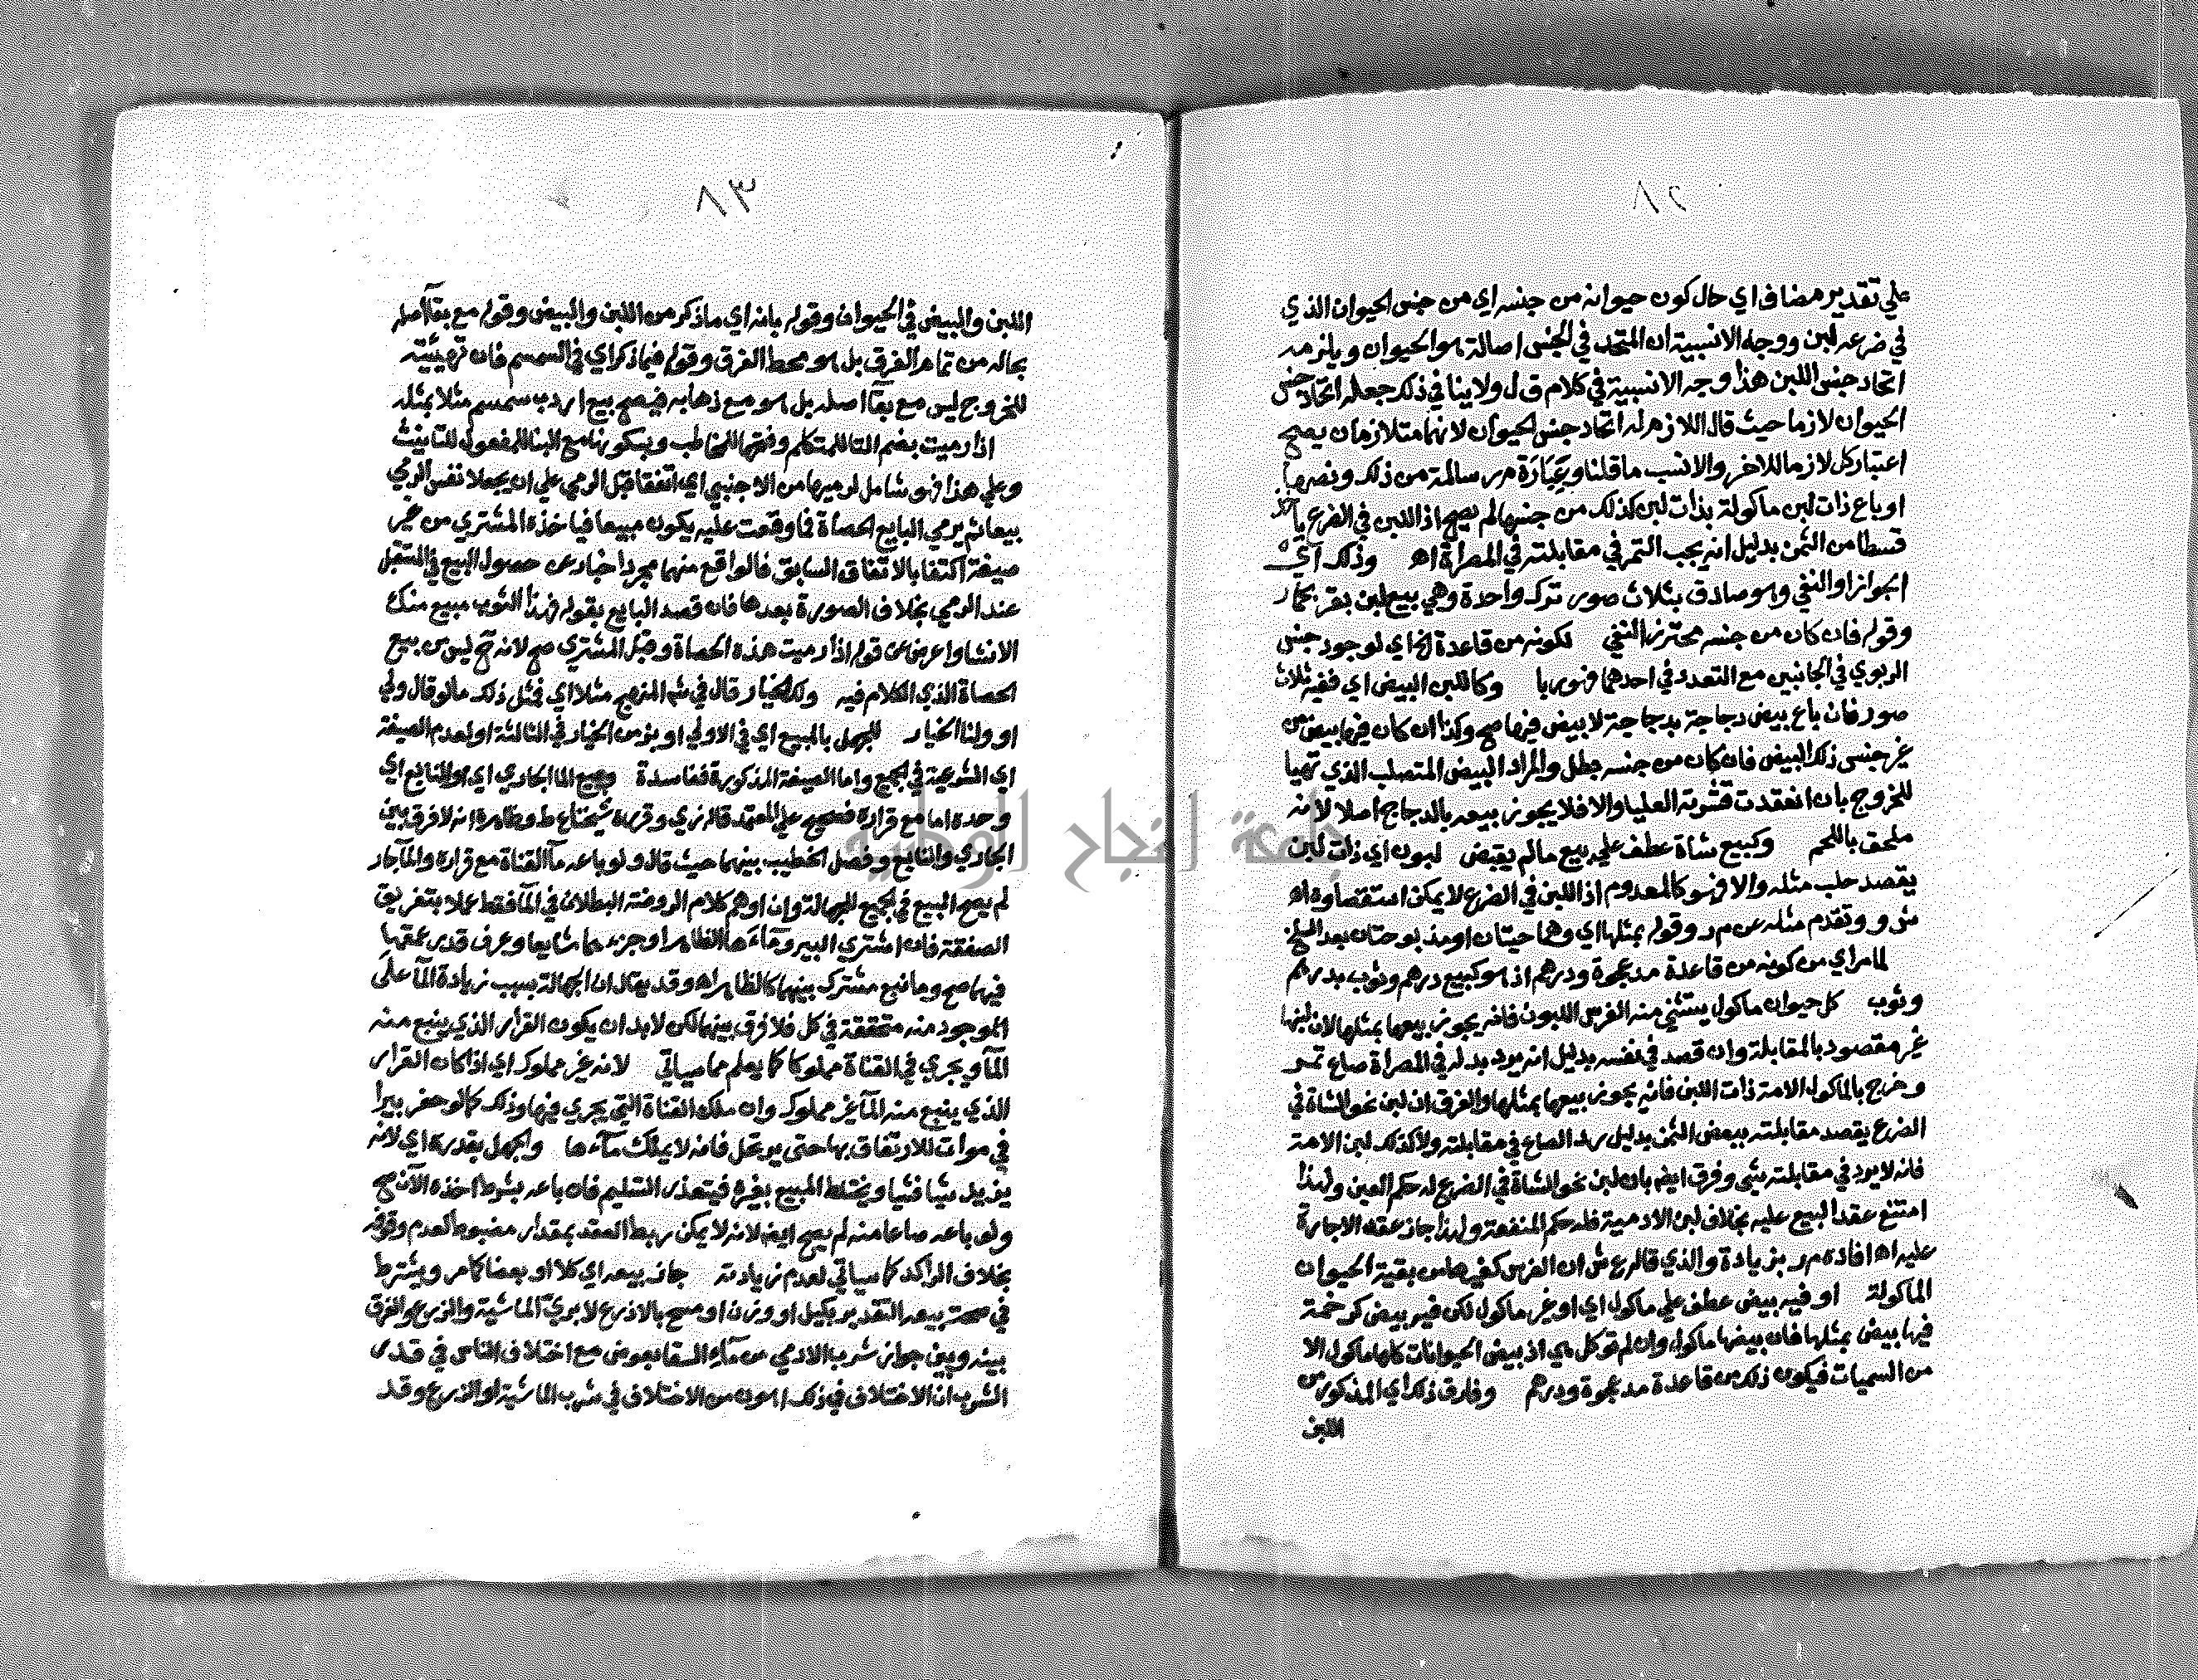 ٨٢
علي تقدير مضاف اي حال كون حيوانه من جنسه اي من جنس الحيوان الذي
في ضرعه لبن ووجه الانسبية ان المتحد في الجنس اصالة هو الحيوان ويلزمه
اتحاد جنس اللبن هذا وجه الانسبية في كلام ق ل ولا ينافي ذلك جعله اتحاد جنس
الحيوان لازما حيث قال اللازم له اتحاد جنس الحيوان لانهما متلازمان يصح
اعتبار كل لازما للاخر والانسب ما قلنا وعبارة م ر سالمة من ذلك ونصها
او باع ذات لبن ماكولة بذات لبن كذلك من جنسها لم يصح اذ اللبن في الضرع ياخذ
قسطا من الثمن بدليل انه يجب التمر في مقابلته في المصراة اه وذلك اي
الجواز او النفي وهو صادق بثلاث صور ترك واحدة وهي بيع لبن بقر بحمار
وقوله فان كان من جنسه محترز النفي لكونه من قاعدة الخ اي لوجود جنس
الربوي في الجانبين مع التعدد في احدهما فهو ربا وكاللبن البيض اي ففيه ثلاث
صور فان باع بيض دجاجة بدجاجة لا بيض فيها صح وكذا ان كان فيها بيض من
غير جنس ذلك البيض فان كان من جنسه بطل والمراد البيض المتصلب الذي تهيا
للخروج بان انعقدت قشرته العليا والا فلا يجوز بيعه بالدجاج اصلا لانه
ملحق باللحم وكبيع شاة عطف علي بيع مالم يقبض لبون اي ذات لبن
يقصد حلب مثله والا فهو كالمعدوم اذ اللبن في الضرع لا يمكن استقصاوه اه
ش و وتقدم مثله عن م ر وقوله بمثلها اي وهما حيتان او مذبوحتان بعد السلخ
لما مر اي من كونه من قاعدة مد عجوة ودرهم اذ هو كبيع درهم وثوب بدرهم
وثوب كل حيوان ماكول يستثني منه الفرس اللبون فانه يجوز بيعها بمثلها لان لبنها
غير مقصود بالمقابلة وان قصد في نفسه بدليل انه يرد بدله في المصراة صاع تمر
وخرج بالماكول الامة ذات اللبن فانه يجوز بيعها بمثلها والفرق ان لبن نحو الشاة في
الضرع يقصد مقابلته ببعض الثمن بدليل رد الصاع في مقابلته ولا كذلك لبن الامة
فانه لا يرد في مقابلته شي وفرق ايضا بان لبن نحو الشاة في الضرع له حكم العين ولهذا
امتنع عقد البيع عليه بخلاف لبن الادمية فله حكم المنفعة ولهذا جاز عقد الاجارة
عليه اه افاده م ر بزيادة والذي قاله ع ش ان الفرس كغيرها من بقية الحيوان
الماكولة او فيه بيض عطف علي ماكول اي او غير ماكول لكن فيه بيض كرخمة
فيها بيض بمثلها فان بيضها ماكول وان لم توكل هي اذ بيض الحيوانات كلها ماكول الا
من السميات فيكون ذلك من قاعدة مد عجوة ودرهم وفارق ذلك اي المذكور من
اللبن
٨٣
اللبن والبيض في الحيوان وقوله بانه اي ما ذكر من اللبن والبيض وقوله مع بقآ اصله
بحاله من تمام الفرق بل هو محط الفرق وقوله فيما ذكر اي في السمسم فان تهيئته
للخروج ليس مع بقآ اصله بل هو مع ذهابه فيصح بيع اردب سمسم مثلا بمثله
اذا رميت بضم التا للمتكلم وفتحها للمخاطب وبسكونها مع البنا للمفعول للتانيث
وعلي هذا فهو شامل لرميها من الاجنبي اي اتفقا قبل الرمي علي ان يجعلا نفس الرمي
بيعا ثم يرمي البايع الحصاة فما وقعت عليه يكون مبيعا فياخذه المشتري من غير
صيغة اكتفا بالاتفاق السابق فالواقع منهما مجرد اخبار عن حصول البيع في المستقبل
عند الرمي بخلاف الصورة بعدها فان قصد البايع بقوله فهذا الثوب مبيع منك
الانشا واعرض عن قوله اذا رميت هذه الحصاة وقبل المشتري صح لانه ح ليس من بيع
الحصاة الذي الكلام فيه ولك الخيار قال في شم المنهج مثلا اي فمثل ذلك ما لو قال ولي
او ولنا الخيار للجهل بالمبيع اي في الاولي او بزمن الخيار في الثالثة او لعدم الصيغة
اي الشرعية في الجميع واما الصيغة المذكورة ففاسدة وبيع الما الجاري اي او النابع اي
وحده اما مع قراره فصحيح علي المعتمد قاله زي وقرره شيخنا ع ط وظاهره انه لا فرق بين
الجاري والنابع وفصل الخطيب بينهما حيث قال ولو باعه مآ القناة مع قراره والمآ جار
لم يصح البيع في الجميع للجهالة وان اوهم كلام الروضة البطلان في المآ فقط عملا بتفريق
الصفقة فان اشتري البير ومآءها الظاهر او جزءهما شايعا وعرف قدر عمقها
فيهما صح وما نبع مشترك بينهما كالظاهر اه وقد يقال ان الجهالة بسبب زيادة المآ علي
الموجود منه متحققة في كل فلا فرق بينهما لكن لا بد ان يكون القرار الذي ينبع منه
المآ ويجري في القناة مملوكا كما يعلم مما سياتي لانه غير مملوك اي اذا كان القرار
الذي ينبع منه المآ غير مملوك وان ملك القناة التي يجري فيها وذلك كما لو حفر بيرا
في موات للارتفاق بها حتى يرتحل فانه لا يملك مآءها والجهل بقدره اي لانه
يزيد شيا فشيا ويختلط المبيع بغيره فيتعذر التسليم فان باعه بشرط اخذه الآن صح
ولو باعه صاعا منه لم يصح ايضا لانه لا يمكن ربط العقد بمقدار مضبوط لعدم وقوفه
بخلاف الراكد كما سياتي لعدم زيادته جاز بيعه اي كلا او بعضا كما مر ويشترط
في صحة بيعه التقدير بكيل او وزن او مسح بالاذرع لا بري الماشية والزرع والفرق
بينه وبين جواز شرب الادمي من مآء السقا بعوض مع اختلاف الناس في قدر
الشرب ان الاختلاف في ذلك اهون من الاختلاف في شرب الماشية او الزرع وقد